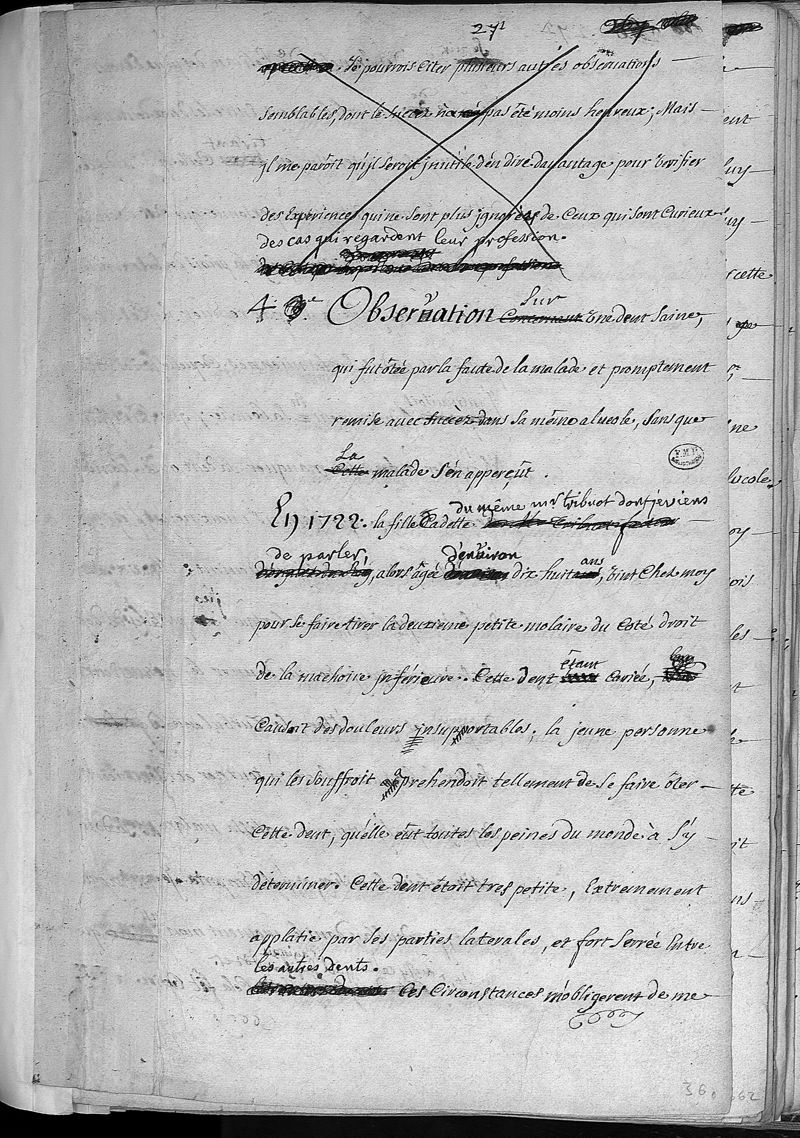 271
Je pourrois Citer plusieurs autres observations
semblables, dont le succez n'a pas été moins heureux; Mais
il me paroît qu'il seroit inutile d'en dire davantage pour vérifier
des Expériences qui ne sont plus ignorées de Ceux qui sont Curieux
des cas qui regardent leur profession.
4e Observation sur Concernant Une dent Saine,
qui fut ôtée par la faute de la malade et promptement
remise avec succèz dans sa même alveole, sans que
La Cette malade s'en apperçût.
En 1722. la fille Cadette du même mr. tribuot dont je viens
de parler, alors âgée d'environ dix huit ans, vint Chez moy
pour se faire tirer la deuxieme petite molaire du Côté droit
de la machoire inférieure. Cette dent étant Cariée,
Causoit des douleurs insupportables; la jeune personne
qui les souffroit apprehendoit tellement de se faire ôter
Cette dent, qu'elle eût toutes les peines du monde à s'y
déterminer. Cette dent étoit tres petite, Extremement
applatie par ses parties laterales, et fort serrée Entre
les autres dents.
Ces Circonstances m'obligerent de me
362